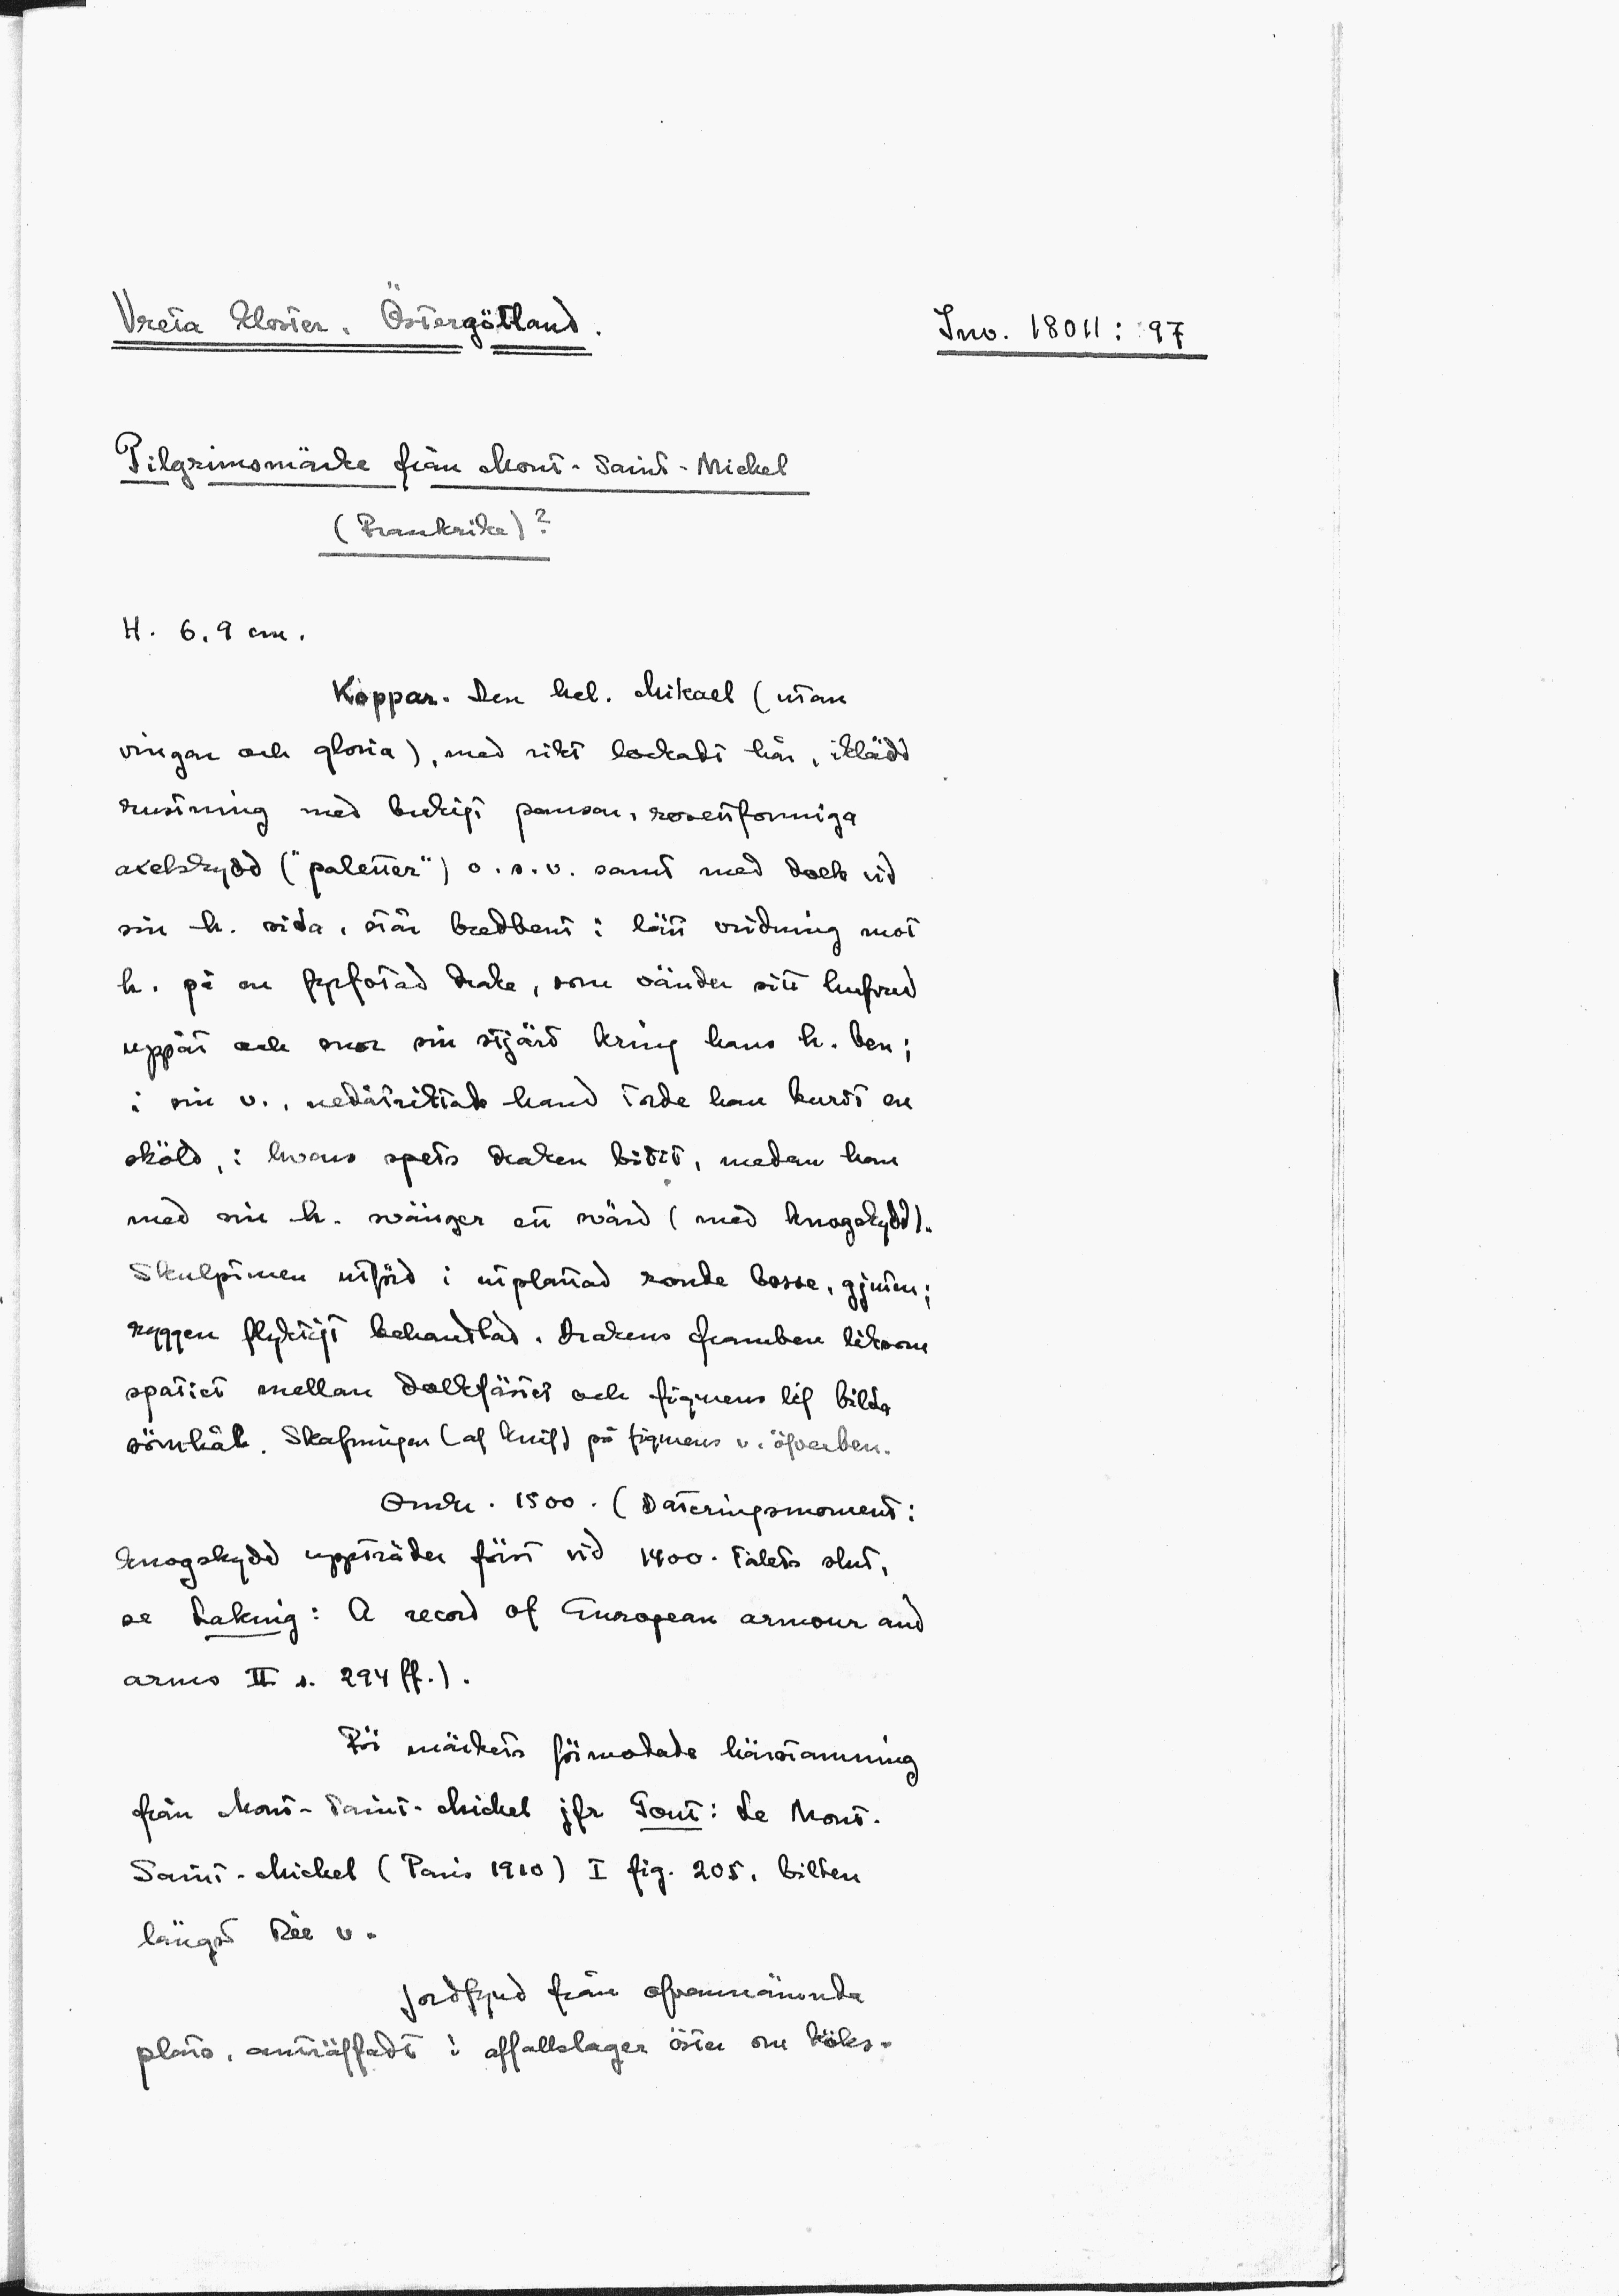 Vreta kloster. Östergötland.
Inv. 18011: 97
Pilgrimsmärke från Mont-Saint-Michel
(Frankrike)?
H. 6,9 cm.
Koppar. Den hel. Mikael (utan
vingar och gloria), med rikt lockadt hår, iklädd
rustning med bukigt pansar, rosettformiga
axelskydd ("paletter") o.s.v. samt med dolk vid
sin h. sida, står bredbent i lätt vridning mot
h. på en fyrfotad drake, som vänder sitt hufvud
uppåt och snor sin stjärt kring hans h. ben;
i sin v., nedåtriktade hand torde han burit en
sköld, i hvars spets draken bitit, medan han
med sin h. svänger ett svärd (med knogskydd).
Skulpturen utförd i utplattad ronde bosse, gjuten;
ryggen flyktigt behandlad. Drakens framben liksom
spatiet mellan dolkfästet och figurens lif bilda
sömhål. Skafningar (af knif) på figurens v. öfverben.
Omkr. 1500. (Dateringsmoment:
knogskydd uppträder först vid 1400-talets slut,
se Laking: A record of European armour and
arms II s. 294 ff.).
För märkets förmodade härstamning
från Mont-Saint-Michel jfr Gout: Le Mont-
Saint-Michel (Paris 1910) I fig. 205, bilden
längst till v.
Jordfynd från ofvannämnda
plats, anträffadt i affallslager öster om köks-